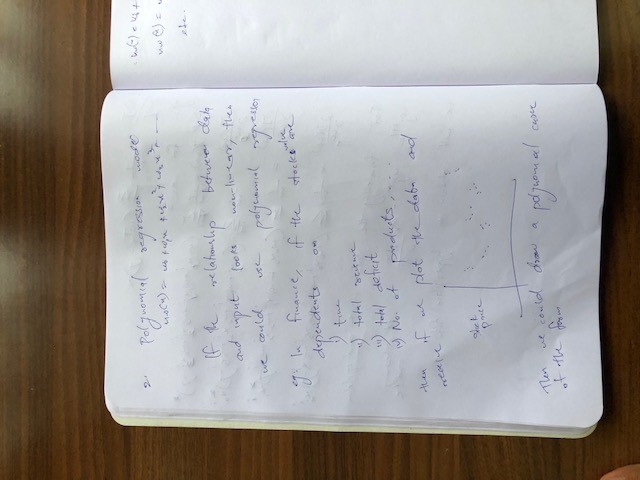 2. Polynomial regression model
w₀(x) = w₀ + w₁x + w₂x² + w₃x³ + ----
If the relationship between data
and input looks non-linear, then
we could use polynomial regression
eg: In finance, if the stocks value are
dependents on
i) time
ii) total revenue
iii) total deficit
iv) No. of products, ....
then if we plot the data and
receive
stock
price
Then we could draw a polynomial curve
of the form
etc.